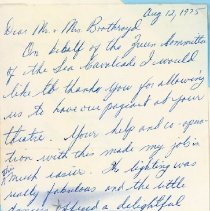 Aug 12, 1975
Dear Mr. & Mrs. Boothroyd
On behalf of the Committee
of the Sea Cavalcade I would
like to thank you for allowing
us to have our pageant at your
theatre. Your help and co-opera
tion with this made my job
much easier. The lighting was
really fabulous and the little
a delightful